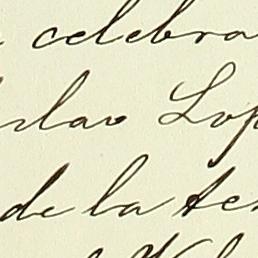 celebra
slao Lop
de la te